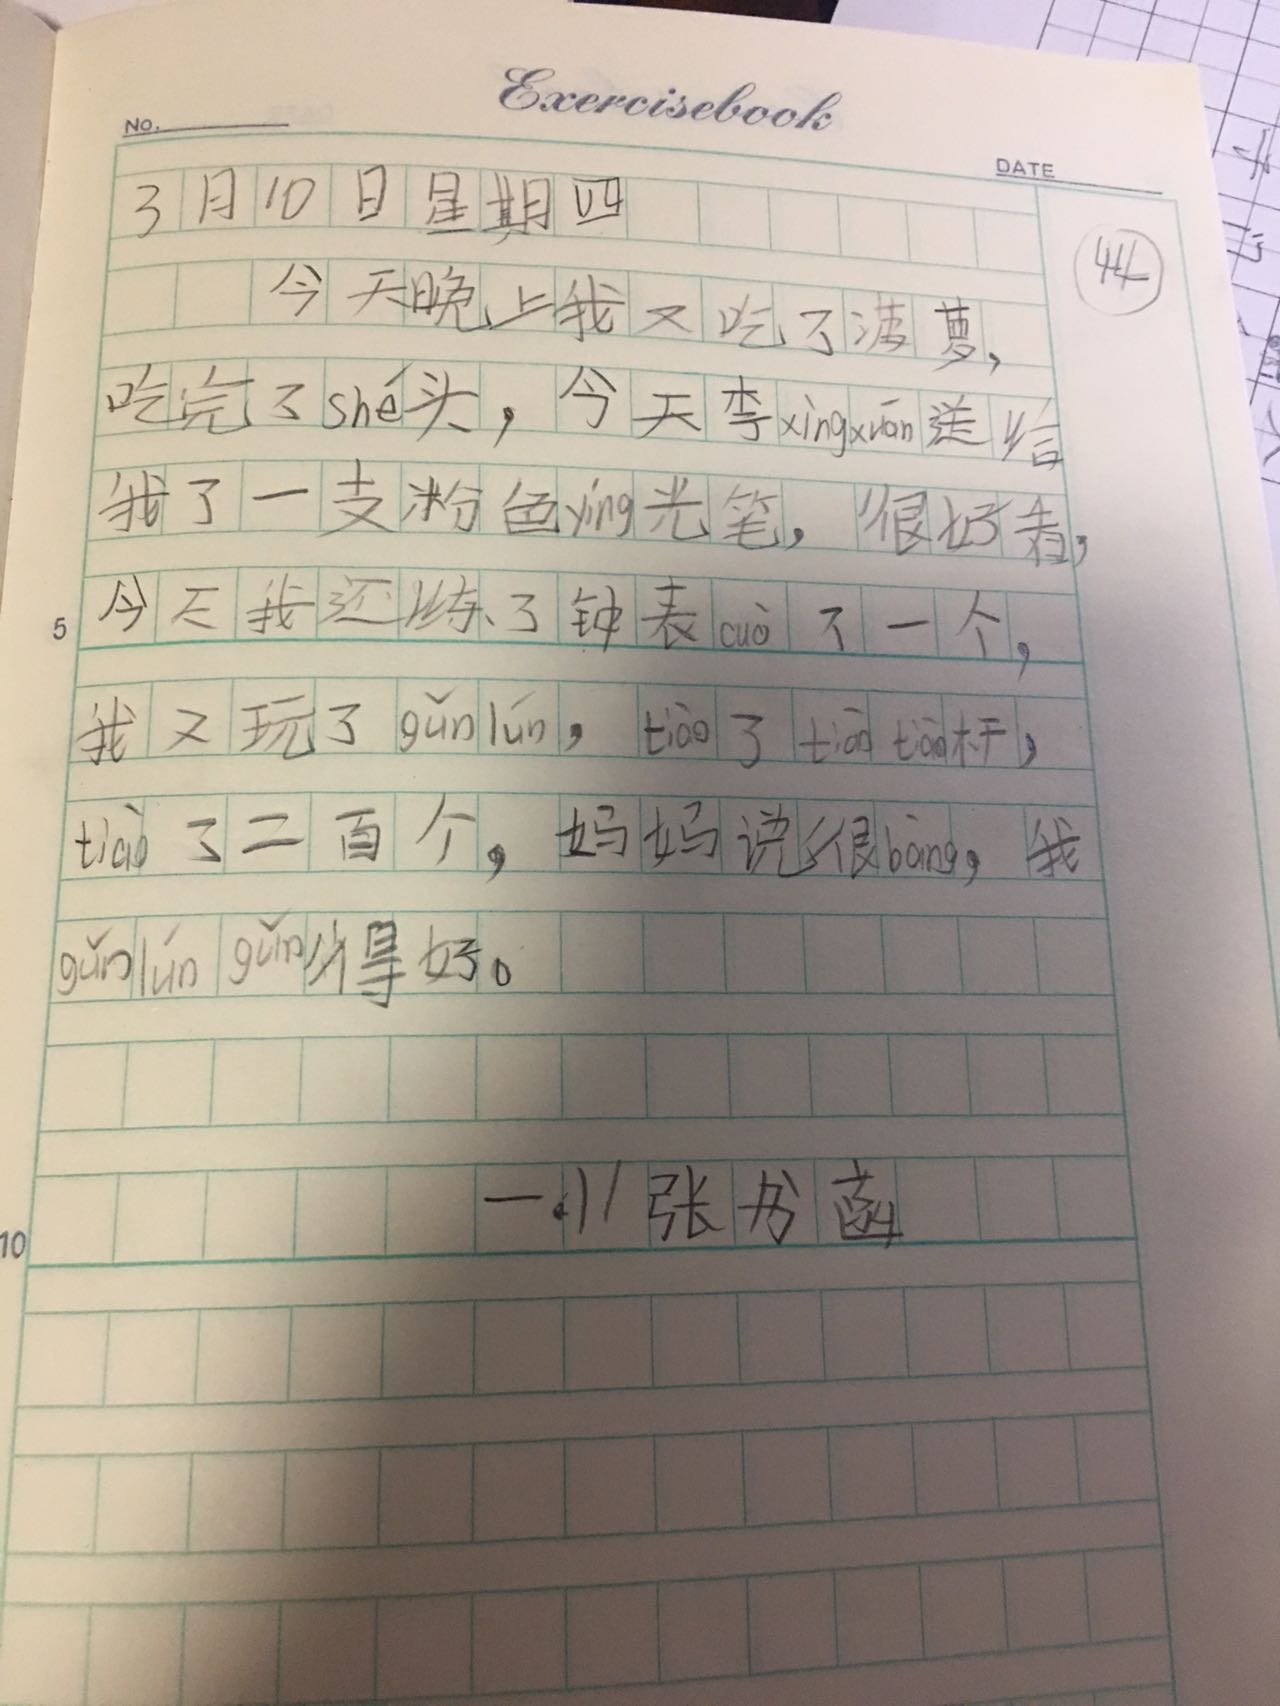 Exercisebook
NO.
DATE
3月10日星期四
44
今天晚上我又吃了菠萝,
吃完了shé头,今天李xìngxuān送给
我了一支粉色yíng光笔,很好看,
5
今天我还练了钟表cuò了一个,
我又玩了gǔnlún,tiào了tiào tiào杆,
tiào了二百个,妈妈说很bàng,我
gǔnlún gǔn得好。
一.11张书菡
10